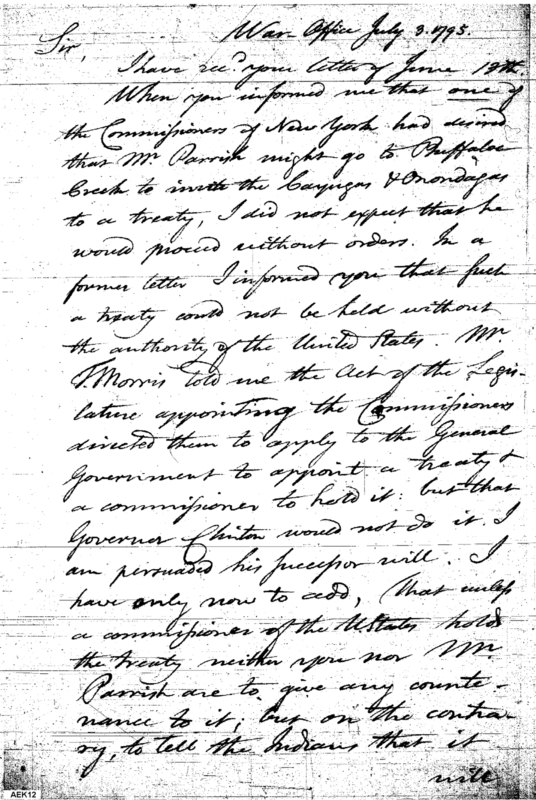 War Office July 3. 1795.
Sir,
I have recd. your letter of June 13th.
When you informed me that one of
the Commissioners of New York had desired
that Mr Parrish might go to Buffaloe
Creek to invite the Cayugas & Onondagas
to a treaty, I did not expect that he
would proceed without orders. In a
former letter I informed you that such
a treaty could not be held without
the authority of the United States. Mr.
T. Morris told me the Act of the Legis-
lature appointing the Commissioners
directed them to apply to the General
Government to appoint a treaty &
a commissioner to hold it: but that
Governor Clinton would not do it. I
am persuaded his successor will. I
have only now to add, that unless
a commissioner of the U. States holds
the treaty neither you nor Mr.
Parrish are to give any counte-
nance to it; but on the contra-
ry, to tell the Indians that it
will
AEK12